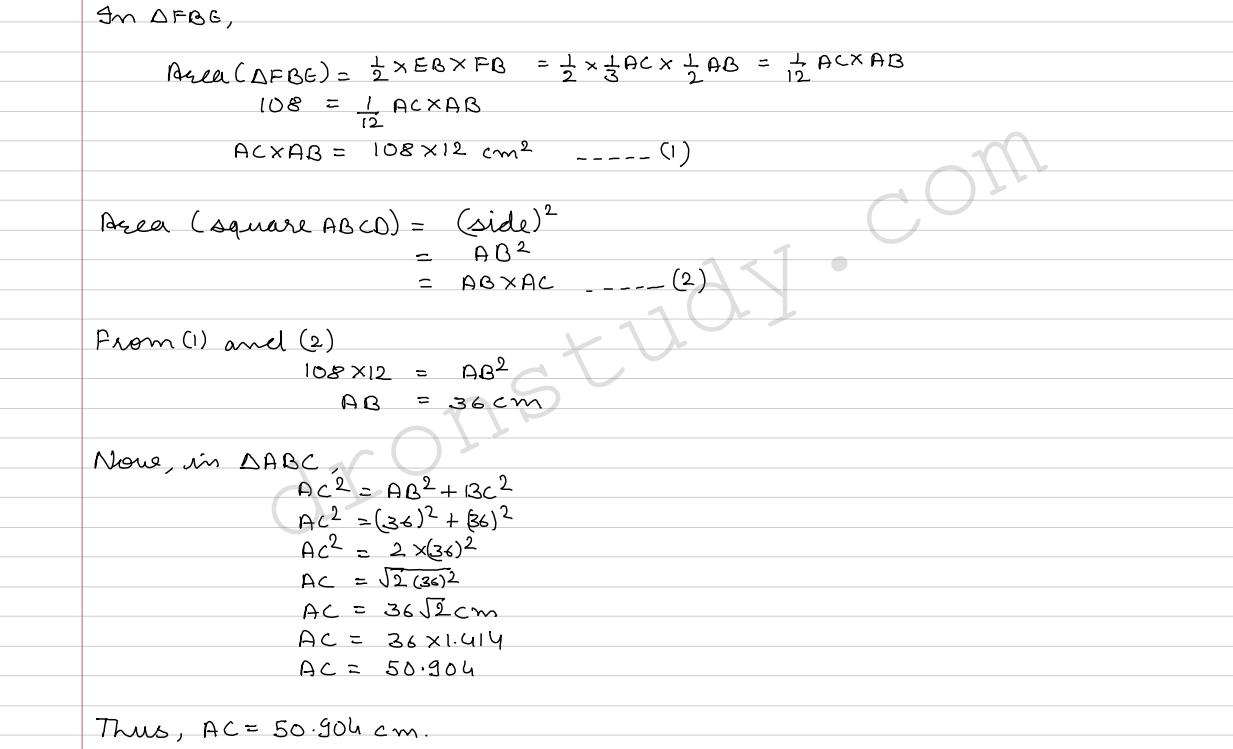 In ΔFBE,
Area (ΔFBE) = 1/2 × EB × FB = 1/2 × 1/3 AC × 1/2 AB = 1/12 AC × AB
108 = 1/12 AC × AB
AC × AB = 108 × 12 cm² ----- (1)
Area (square ABCD) = (side)²
= AB²
= AB × AC ----- (2)
From (1) and (2)
108 × 12 = AB²
AB = 36 cm
Now, in ΔABC,
AC² = AB² + BC²
AC² = (36)² + (36)²
AC² = 2 × (36)²
AC = √2(36)²
AC = 36√2 cm
AC = 36 × 1.414
AC = 50.904
Thus, AC = 50.904 cm.
dronstudy.com